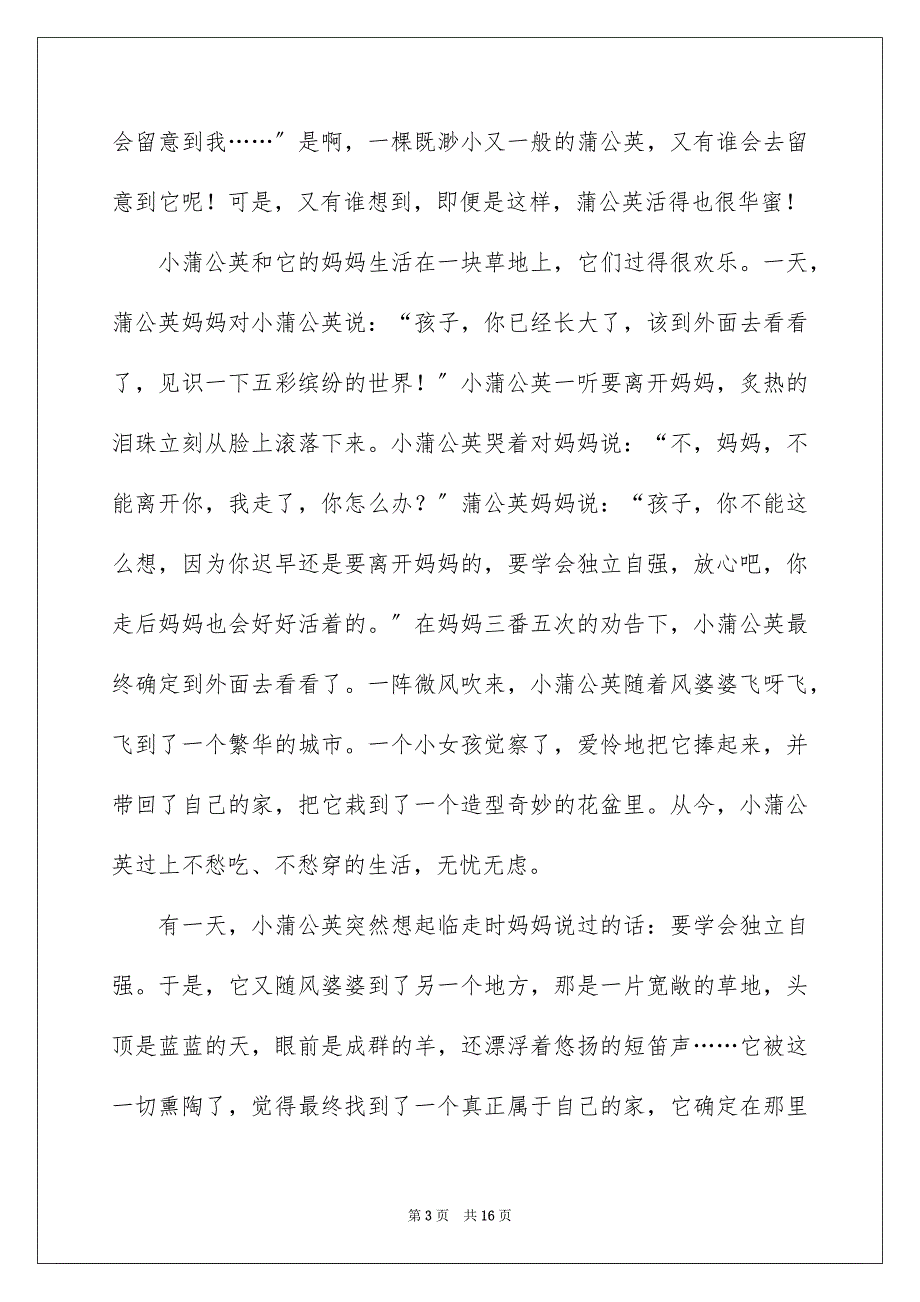 会留意到我……〞是啊，一棵既渺小又一般的蒲公英，又有谁会去留
意到它呢！可是，又有谁想到，即便是这样，蒲公英活得也很华蜜！
小蒲公英和它的妈妈生活在一块草地上，它们过得很欢乐。一天，
蒲公英妈妈对小蒲公英说：“孩子，你已经长大了，该到外面去看看
了，见识一下五彩缤纷的世界！〞小蒲公英一听要离开妈妈，炙热的
泪珠立刻从脸上滚落下来。小蒲公英哭着对妈妈说：“不，妈妈，不
能离开你，我走了，你怎么办？〞蒲公英妈妈说：“孩子，你不能这
么想，因为你迟早还是要离开妈妈的，要学会独立自强，放心吧，你
走后妈妈也会好好活着的。〞在妈妈三番五次的劝告下，小蒲公英最
终确定到外面去看看了。一阵微风吹来，小蒲公英随着风婆婆飞呀飞，
飞到了一个繁华的城市。一个小女孩觉察了，爱怜地把它捧起来，并
带回了自己的家，把它栽到了一个造型奇妙的花盆里。从今，小蒲公
英过上不愁吃、不愁穿的生活，无忧无虑。
有一天，小蒲公英突然想起临走时妈妈说过的话：要学会独立自
强。于是，它又随风婆婆到了另一个地方，那是一片宽敞的草地，头
顶是蓝蓝的天，眼前是成群的羊，还漂浮着悠扬的短笛声……它被这
一切熏陶了，觉得最终找到了一个真正属于自己的家，它确定在那里
第 3 页 共 16 页